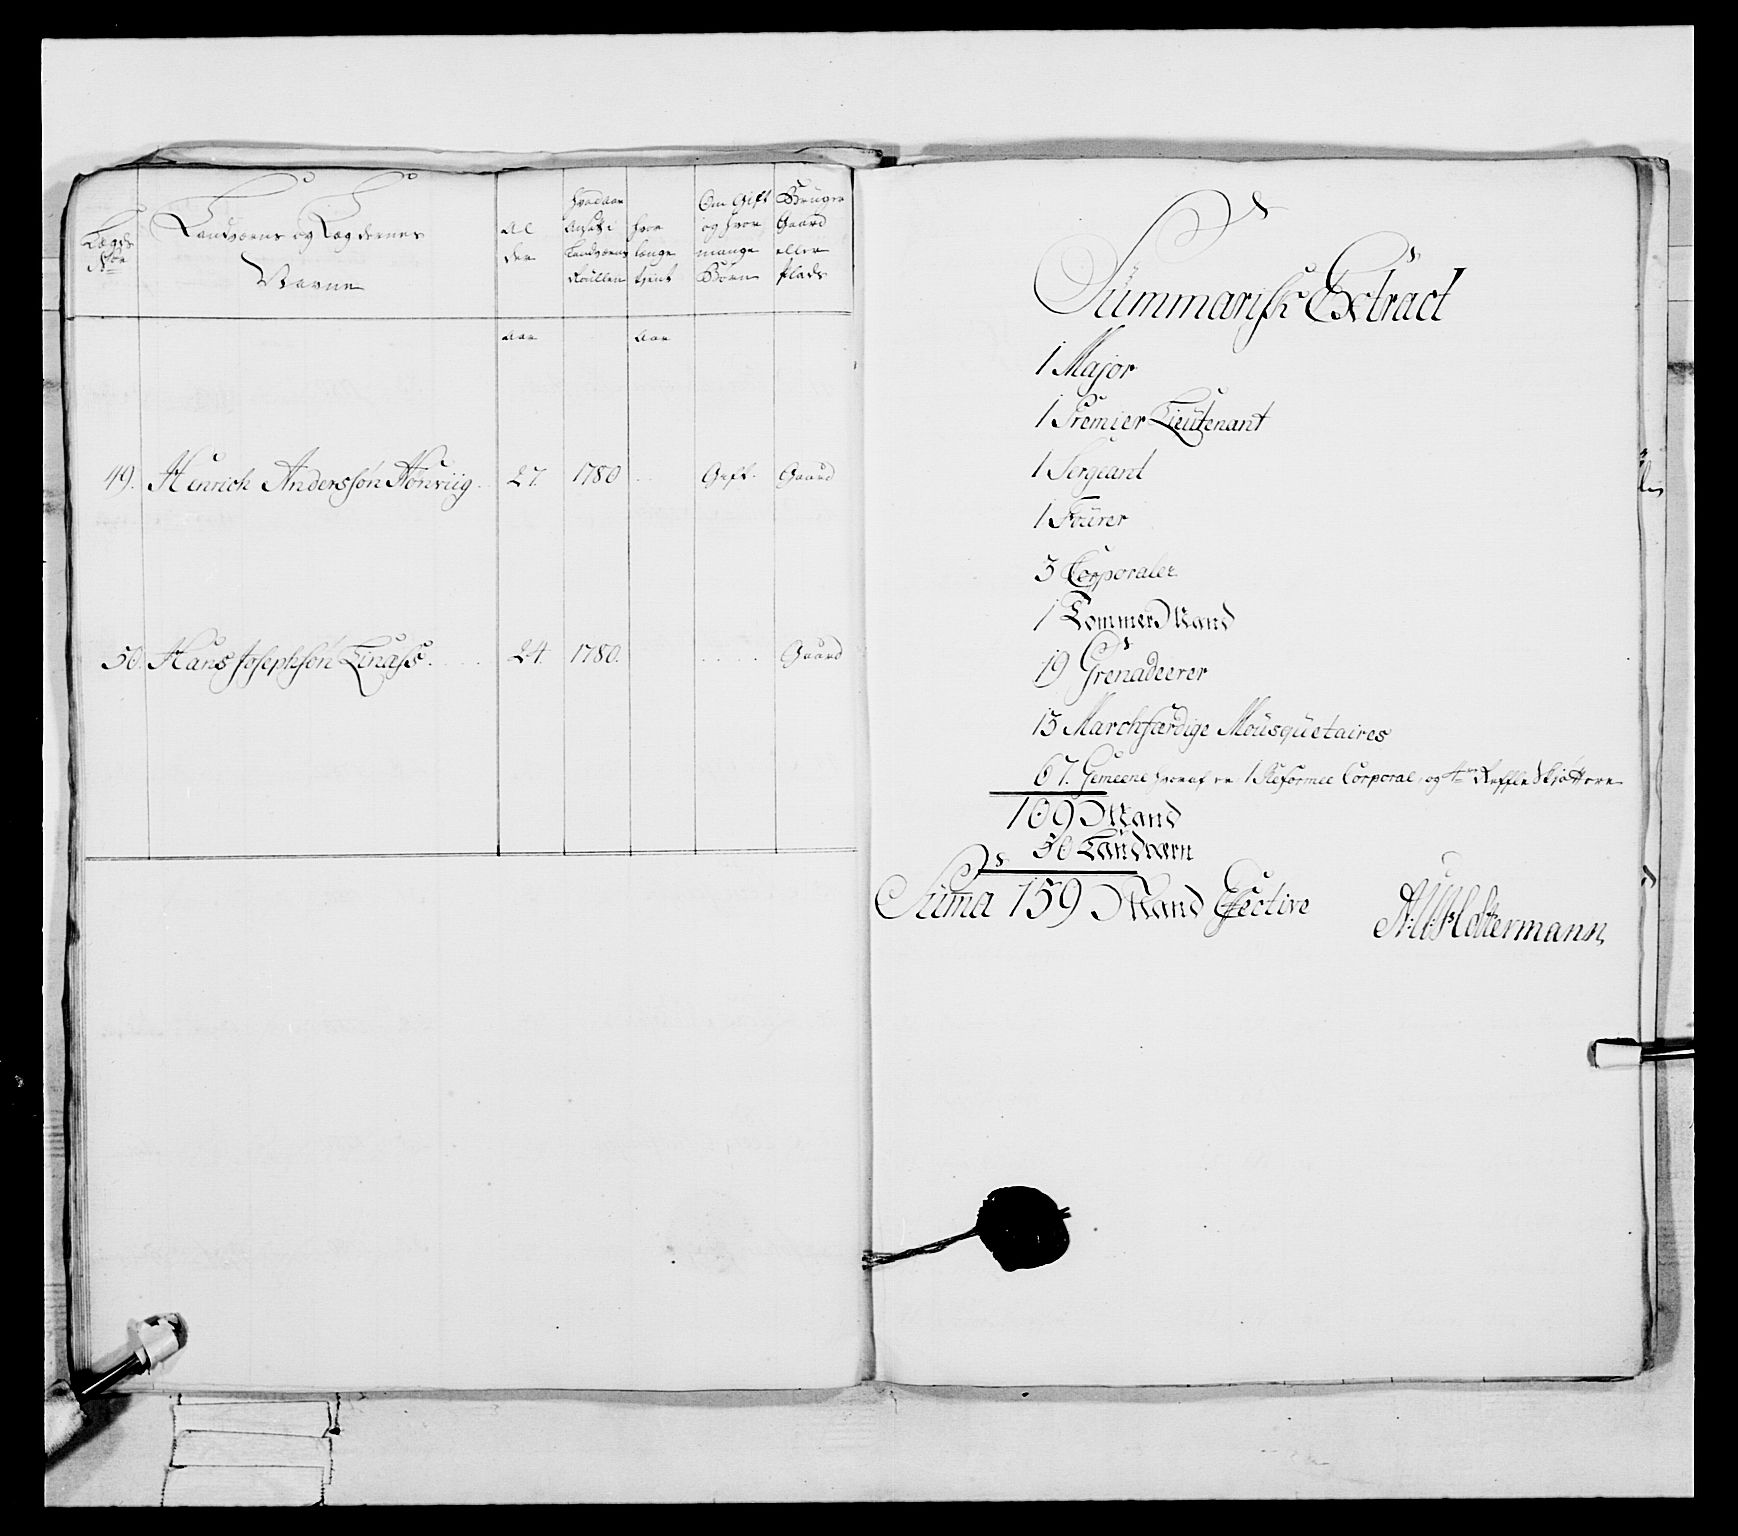 Lægds Nore
Landværns og Lægdernes Navne
Al der
Hvad aar Ansatt i Landværns Roullen
Hvor længe tient
Om Gift og hvor mange Børn
Bruger Gaard eller Plads
Aar Aar
49. Henrich Anderssøn 27. 1780 Gift. Gaard
50. Hans Josephsøn 24. 1780. Gaard
Summarisk Extract
1 Major
1 Premier Lieutenant
1 Sergeant
1 Fourer
3 Corporaler
1 TømmerMand
19 Grenadeerer
15 Marchfærdige Mousquetaires
67. Gemeene hvoraf er 1 Reformee Corporal, og 4re Reffle Skyttere
109 Mand
50 Landværn
Suma 159 Mand Effective